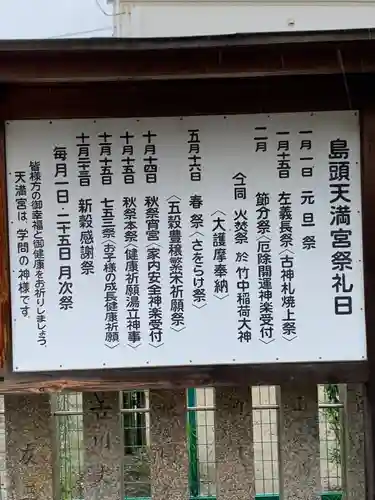 島頭天満宮祭礼日
一月一日 元旦祭
一月十五日 左義長祭〈古神札焼上祭〉
二月 節分祭〈厄除開運神楽受付〉
仝同 火焚祭 於竹中稲荷大神
〈大護摩奉納〉
五月十六日 春祭〈さをらけ祭〉
〈五穀豊穣繁栄祈願祭〉
十月十四日 秋祭宵宮〈家内安全神楽受付〉
十月十五日 秋祭本祭〈健康祈願湯立神事〉
十月十五日 七五三祭〈お子様の成長健康祈願〉
十月二十三日 新穀感謝祭
毎月一日・二十五日 月次祭
皆様方の御幸福と御健康をお祈りしましょう。
天満宮は、学問の神様です